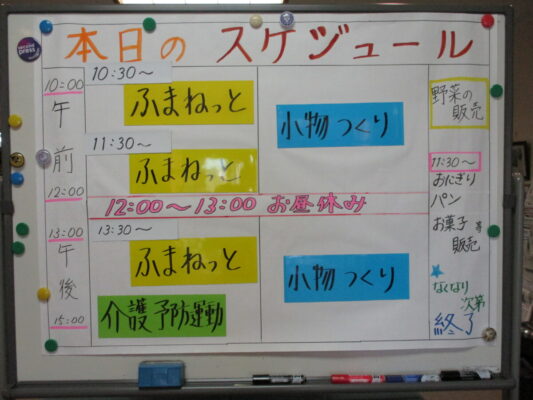 本日のスケジュール
10:00
午前
12:00
13:00
午後
15:00
10:30～
ふまねっと
11:30～
ふまねっと
小物つくり
12:00～13:00 お昼休み
13:30～
ふまねっと
介護予防運動
小物つくり
野菜の
販売
11:30～
おにぎり
パン
お菓子等
販売
なくなり
次第
終了